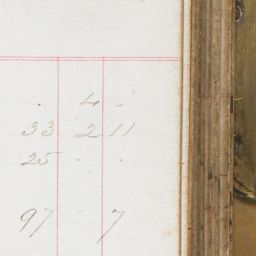 . 4 -
33 2 11
25 . .
97 7